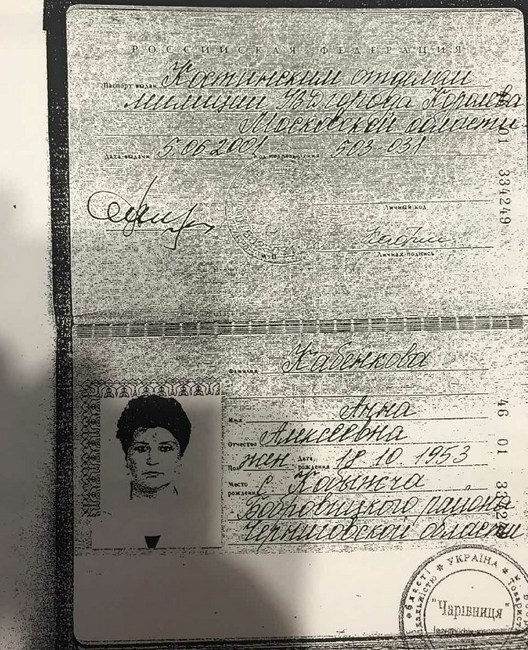 РОССИЙСКАЯ ФЕДЕРАЦИЯ
Паспорт выдан Костинским отделом
милиции УВД города Королева
Московской области
Дата выдачи 5.06.2001 Код подразделения 503-031
Личный код
Личная подпись
01 334249
Фамилия Кабенкова
Имя Анна
Отчество Алексеевна
Пол жен Дата рождения 18.10.1953
Место рождения с.
Бобровицкого района
Черниговской области
46 01
УКРАЇНА
"Чарівниця"